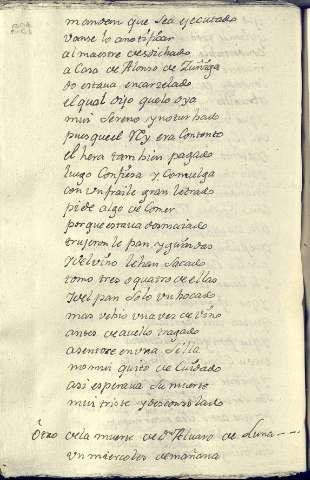 mandan que sea executado
vanse lo a notificar
al maestre desdichado
a Casa de Alonso de Zuñiga
do estava encarzelado
el qual dijo quelo oyo
mui sereno y no turbado
pues que el Rey era Contento
el hera tambien pagado
luego Confiesa y Comulga
con un fraile gran letrado
pide algo de Comer
porque estava desmaiado
trujeron le pan y guindas
y del vino le han sacado
tomo tres o quatro de ellas
y del pan solo un bocado
mas vebio una vez de vino
antes de avello tragado
asentose en una silla
no mui quito de Cuidado
asi esperava su muerte
mui triste y desconsolado
Otro de la muerte de Dn Alvaro de Luna
un miercoles de mañana